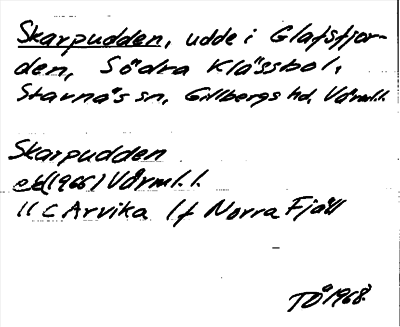 Skarpudden, udde i Glafsfjor-
den, Södra Klässbol,
Stavnäs sn, Gillbergs hd, Värml.l.
Skarpudden
ek (1966) Värml.l.
11 C Arvika 1f Norra Fjäll
TÅ 1968.